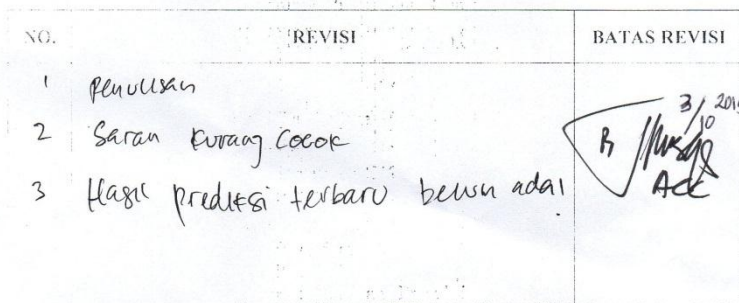 NO. REVISI BATAS REVISI
1 Penulisan
2 Saran Kurang Cocok
3 Hasil prediksi terbaru belum ada!
3/10 201
Acc